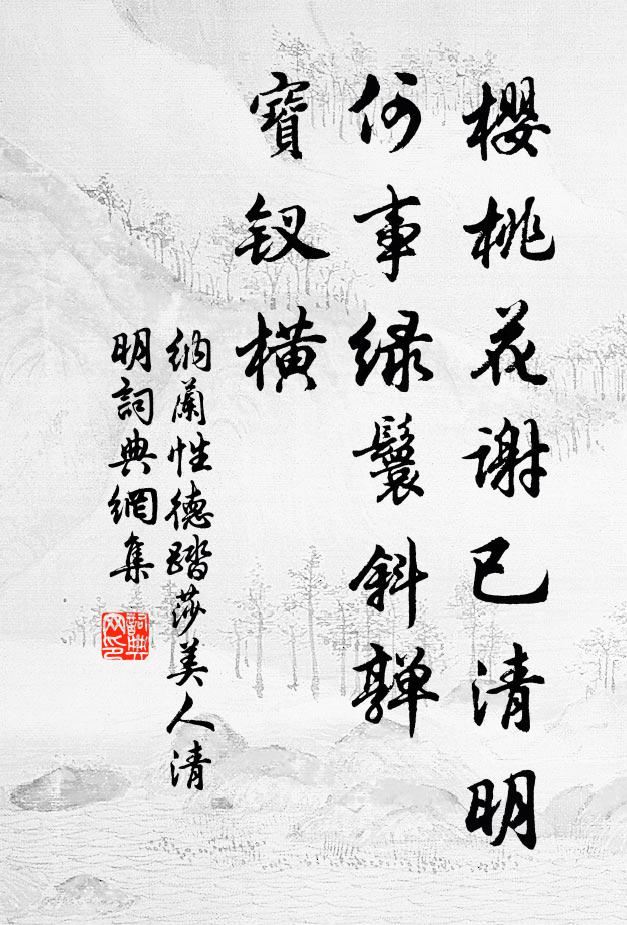 櫻桃花谢已清明
何事绿鬟斜嚲
寶钗横
纳蘭性德踏莎美人清
明詞典網集
詞典
网印